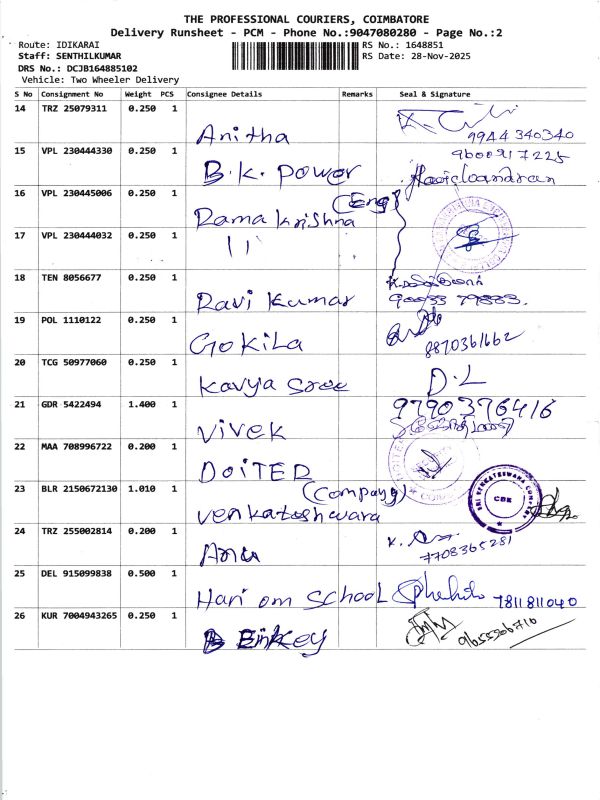 THE PROFESSIONAL COURIERS, COIMBATORE
Delivery Runsheet - PCM - Phone No.:9047080280 - Page No.:2
Route: IDIKARAI
RS No.: 1648851
Staff: SENTHILKUMAR
RS Date: 28-Nov-2025
DRS No.: DCJB164885102
Vehicle: Two Wheeler Delivery
S No Consignment No Weight PCS Consignee Details Remarks Seal & Signature
14 TRZ 25079311 0.250 1
Anitha
9944 340340
15 VPL 230444330 0.250 1
9600917225
B.K. Power
16 VPL 230445006 0.250 1
(Eng)
Rama Krishna
17 VPL 230444032 0.250 1
11
18 TEN 8056677 0.250 1
Ravi Kumar
90033 79883.
19 POL 1110122 0.250 1
GokiLa
8870361662
20 TCG 50977060 0.250 1
Kavya Sree
D.L
21 GDR 5422494 1.400 1
9790376416
Vivek
22 MAA 708996722 0.200 1
DOITER
23 BLR 2150672130 1.010 1
(Company)
Venkateshwara
SRI VENKATESWARA COMPANY
CBE
24 TRZ 255002814 0.200 1
Anu
7708365281
25 DEL 915099838 0.500 1
Hari om School
7811811040
26 KUR 7004943265 0.250 1
Enkey
9655566716